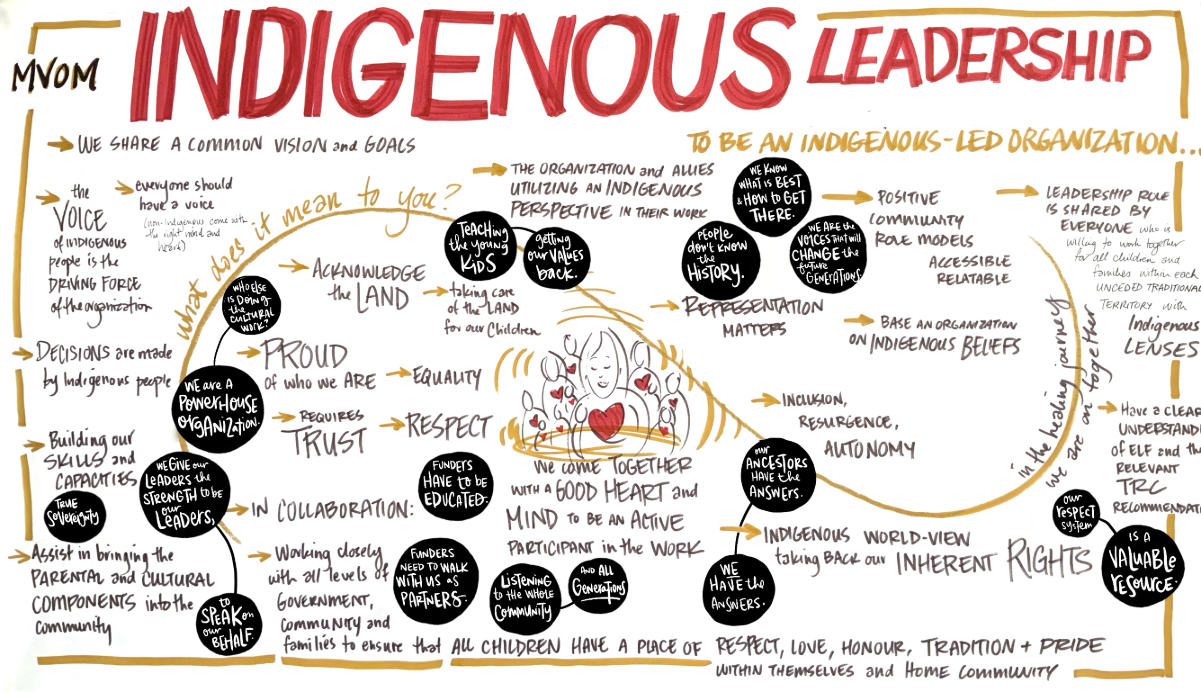 MVOM
INDIGENOUS LEADERSHIP
WE SHARE A COMMON VISION and GOALS
the
VOICE
of INDIGENOUS
people is the
DRIVING FORCE
of the organization
everyone should
have a voice
(non-Indigenous come with
the right mind and
heart)
what does it mean to you?
DECISIONS are made
by Indigenous people
Building our
SKILLS and
CAPACITIES
TRUE
SOVEREIGNTY
Assist in bringing the
PARENTAL and CULTURAL
COMPONENTS into the
community
WHO ELSE
IS DOING
the
CULTURAL
WORK?
WE are A
POWERHOUSE
ORGANIZATION.
WE GIVE our
LEADERS the
STRENGTH to be
our
LEADERS,
to
SPEAK on
our
BEHALF.
ACKNOWLEDGE
the LAND
taking care
of the LAND
for our Children
PROUD
of who we ARE
EQUALITY
REQUIRES
TRUST
RESPECT
IN COLLABORATION:
FUNDERS
HAVE TO BE
EDUCATED.
Working closely
with all levels of
GOVERNMENT,
community and
families to ensure that ALL CHILDREN HAVE A PLACE OF RESPECT, LOVE, HONOUR, TRADITION + PRIDE
WITHIN THEMSELVES and HOME COMMUNITY
FUNDERS
NEED TO WALK
WITH US AS
PARTNERS.
THE ORGANIZATION and ALLIES
UTILIZING AN INDIGENOUS
PERSPECTIVE IN THEIR WORK
TEACHING
the YOUNG
KIDS
getting
our VALUES
back.
WE COME TOGETHER
WITH A GOOD HEART and
MIND TO BE AN ACTIVE
PARTICIPANT in the WORK
LISTENING
to the WHOLE
COMMUNITY
AND ALL
GENERATIONS
TO BE AN INDIGENOUS-LED ORGANIZATION...
WE KNOW
WHAT IS BEST
& HOW to GET
THERE.
PEOPLE
don't KNOW
the
HISTORY.
WE ARE the
VOICES THAT will
CHANGE the
future
GENERATIONS
REPRESENTATION
MATTERS
POSITIVE
COMMUNITY
ROLE MODELS
ACCESSIBLE
RELATABLE
BASE AN ORGANIZATION
ON INDIGENOUS BELIEFS
LEADERSHIP ROLE
IS SHARED BY
EVERYONE who is
willing to work together
for all children and
families within each
UNCEDED TRADITIONAL
TERRITORY with
Indigenous
LENSES
in the healing journey
we are all on together
INCLUSION,
RESURGENCE,
AUTONOMY
our
ANCESTORS
HAVE THE
ANSWERS.
WE
HAVE the
ANSWERS.
INDIGENOUS WORLD-VIEW
taking BACK our INHERENT RIGHTS
Have a CLEAR
UNDERSTAND
of ELF and the
RELEVANT
TRC
RECOMMENDAT
our
respect
system
IS A
VALUABLE
RESOURCE.